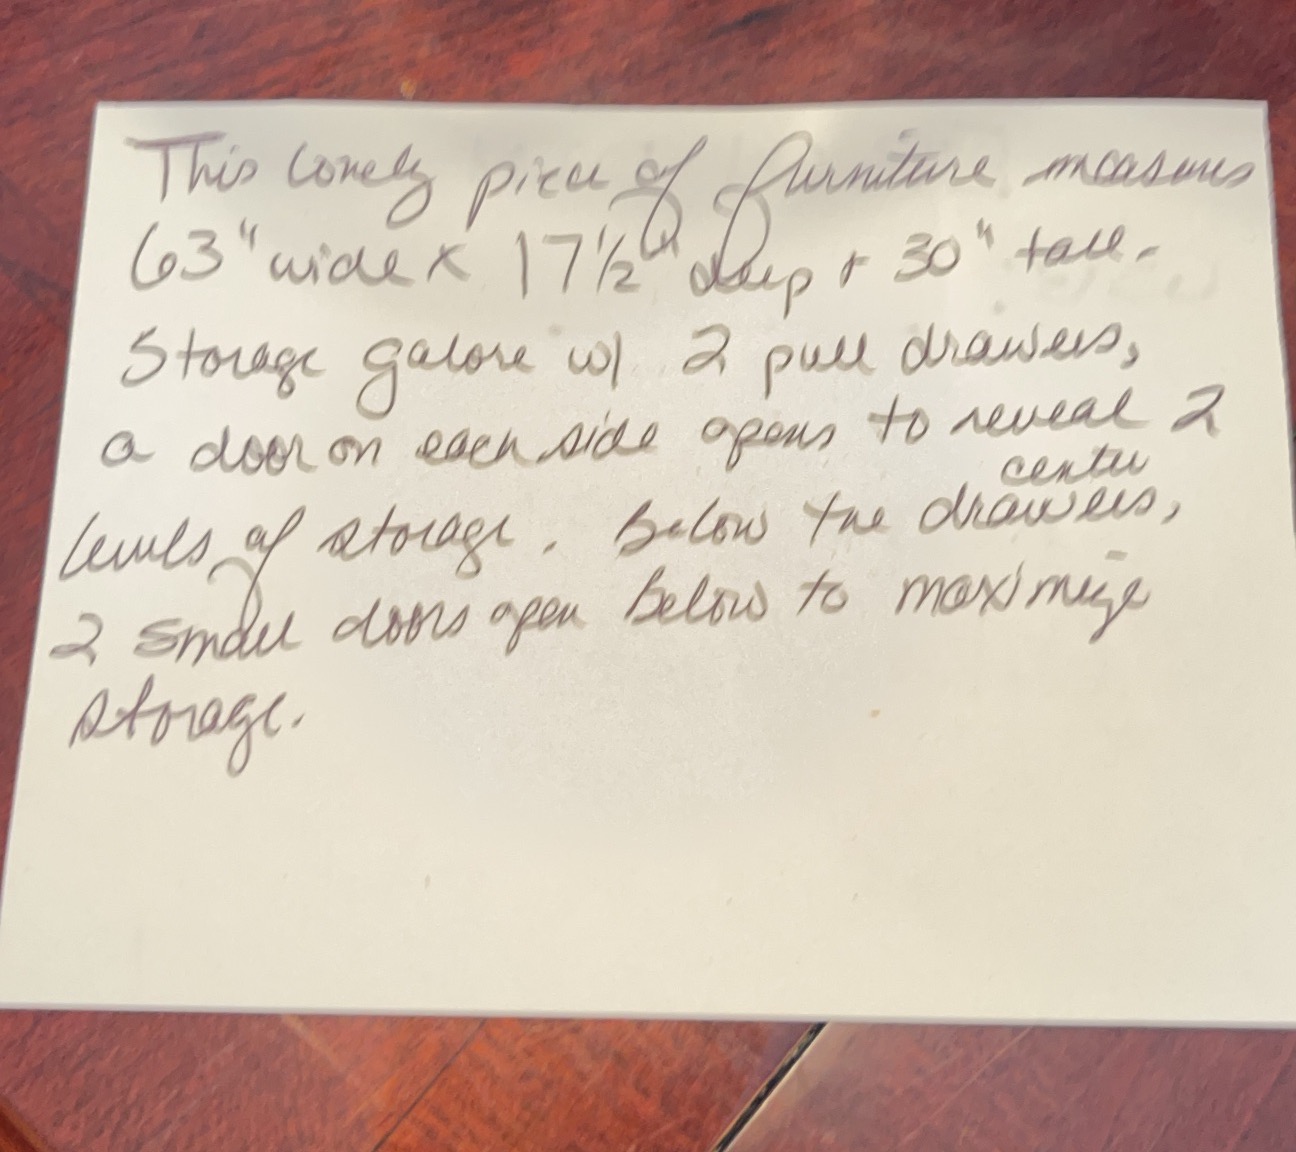 This lovely piece of furniture measures
63" wide x 17 1/2" deep + 30" tall.
Storage galore w/ 2 pull drawers,
a door on each side opens to reveal 2
center
levels of storage. Below the drawers,
2 small doors open below to maximize
storage.